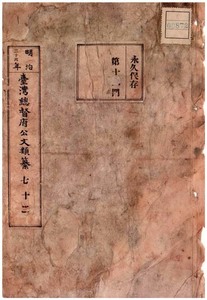 永久保存
第十一門
明治
三十六年
臺灣總督府公文類纂 七十二